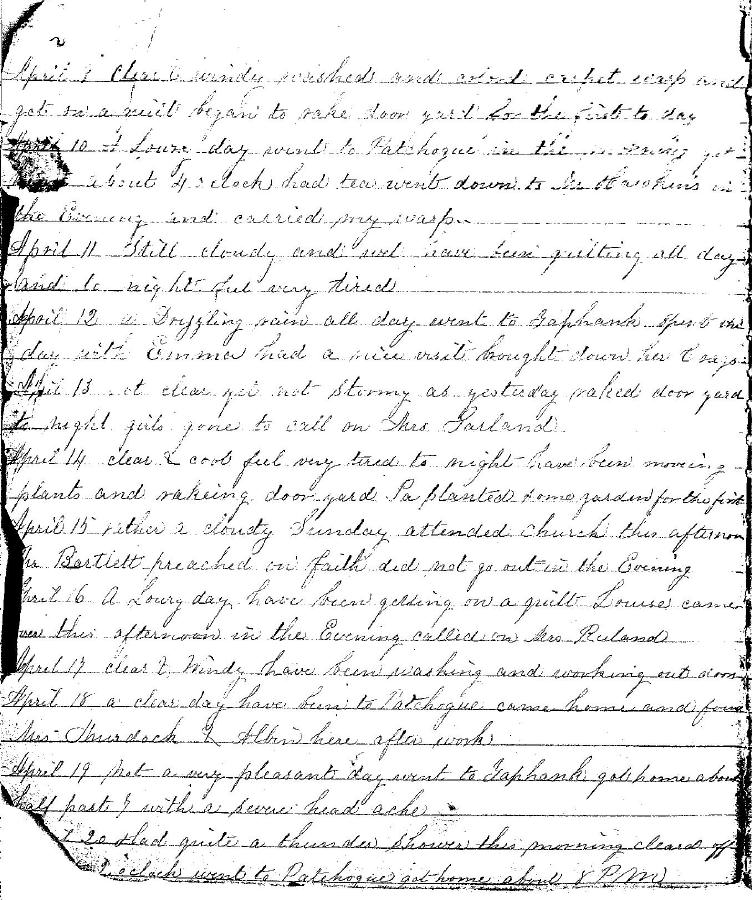 2
April 9 clear & windy washed and colord carpet warp and
got on a quilt began to rake door yard for the first to day
April 10 A Loury day went to Patchogue in the morning got
about 4 oclock had tea went down to Mr Hawkins in
the Evening and carried my warp
April 11 Still cloudy and wet have been quilting all day
and to night feel very tired
April 12 a Drizzling rain all day went to Yaphank spent the
day with Emma had a nice visit brought down her & rags
April 13 not clear yet not stormy as yesterday raked door yard
to night girls gone to call on Mrs Garland
April 14 clear & cool feel very tired to night have been moveing
plants and rakeing door yard Pa planted some garden for the first
April 15 rather a cloudy Sunday attended church this afternoon
Mr Bartlett preached on faith did not go out in the Evening
April 16 A Loury day have been getting on a quilt Louise came
over this afternoon in the Evening called on Mrs Ruland
April 17 clear & Windy have been washing and working out doors
April 18 a clear day have been to Patchogue came home and found
Mrs Murdock & Albin here after work
April 19 Not a very pleasant day went to Yaphank got home about
half past 7 with a severe head ache
20 Had quite a thunder shower this morning cleard off
oclock went to Patchogue got home about 8 PM